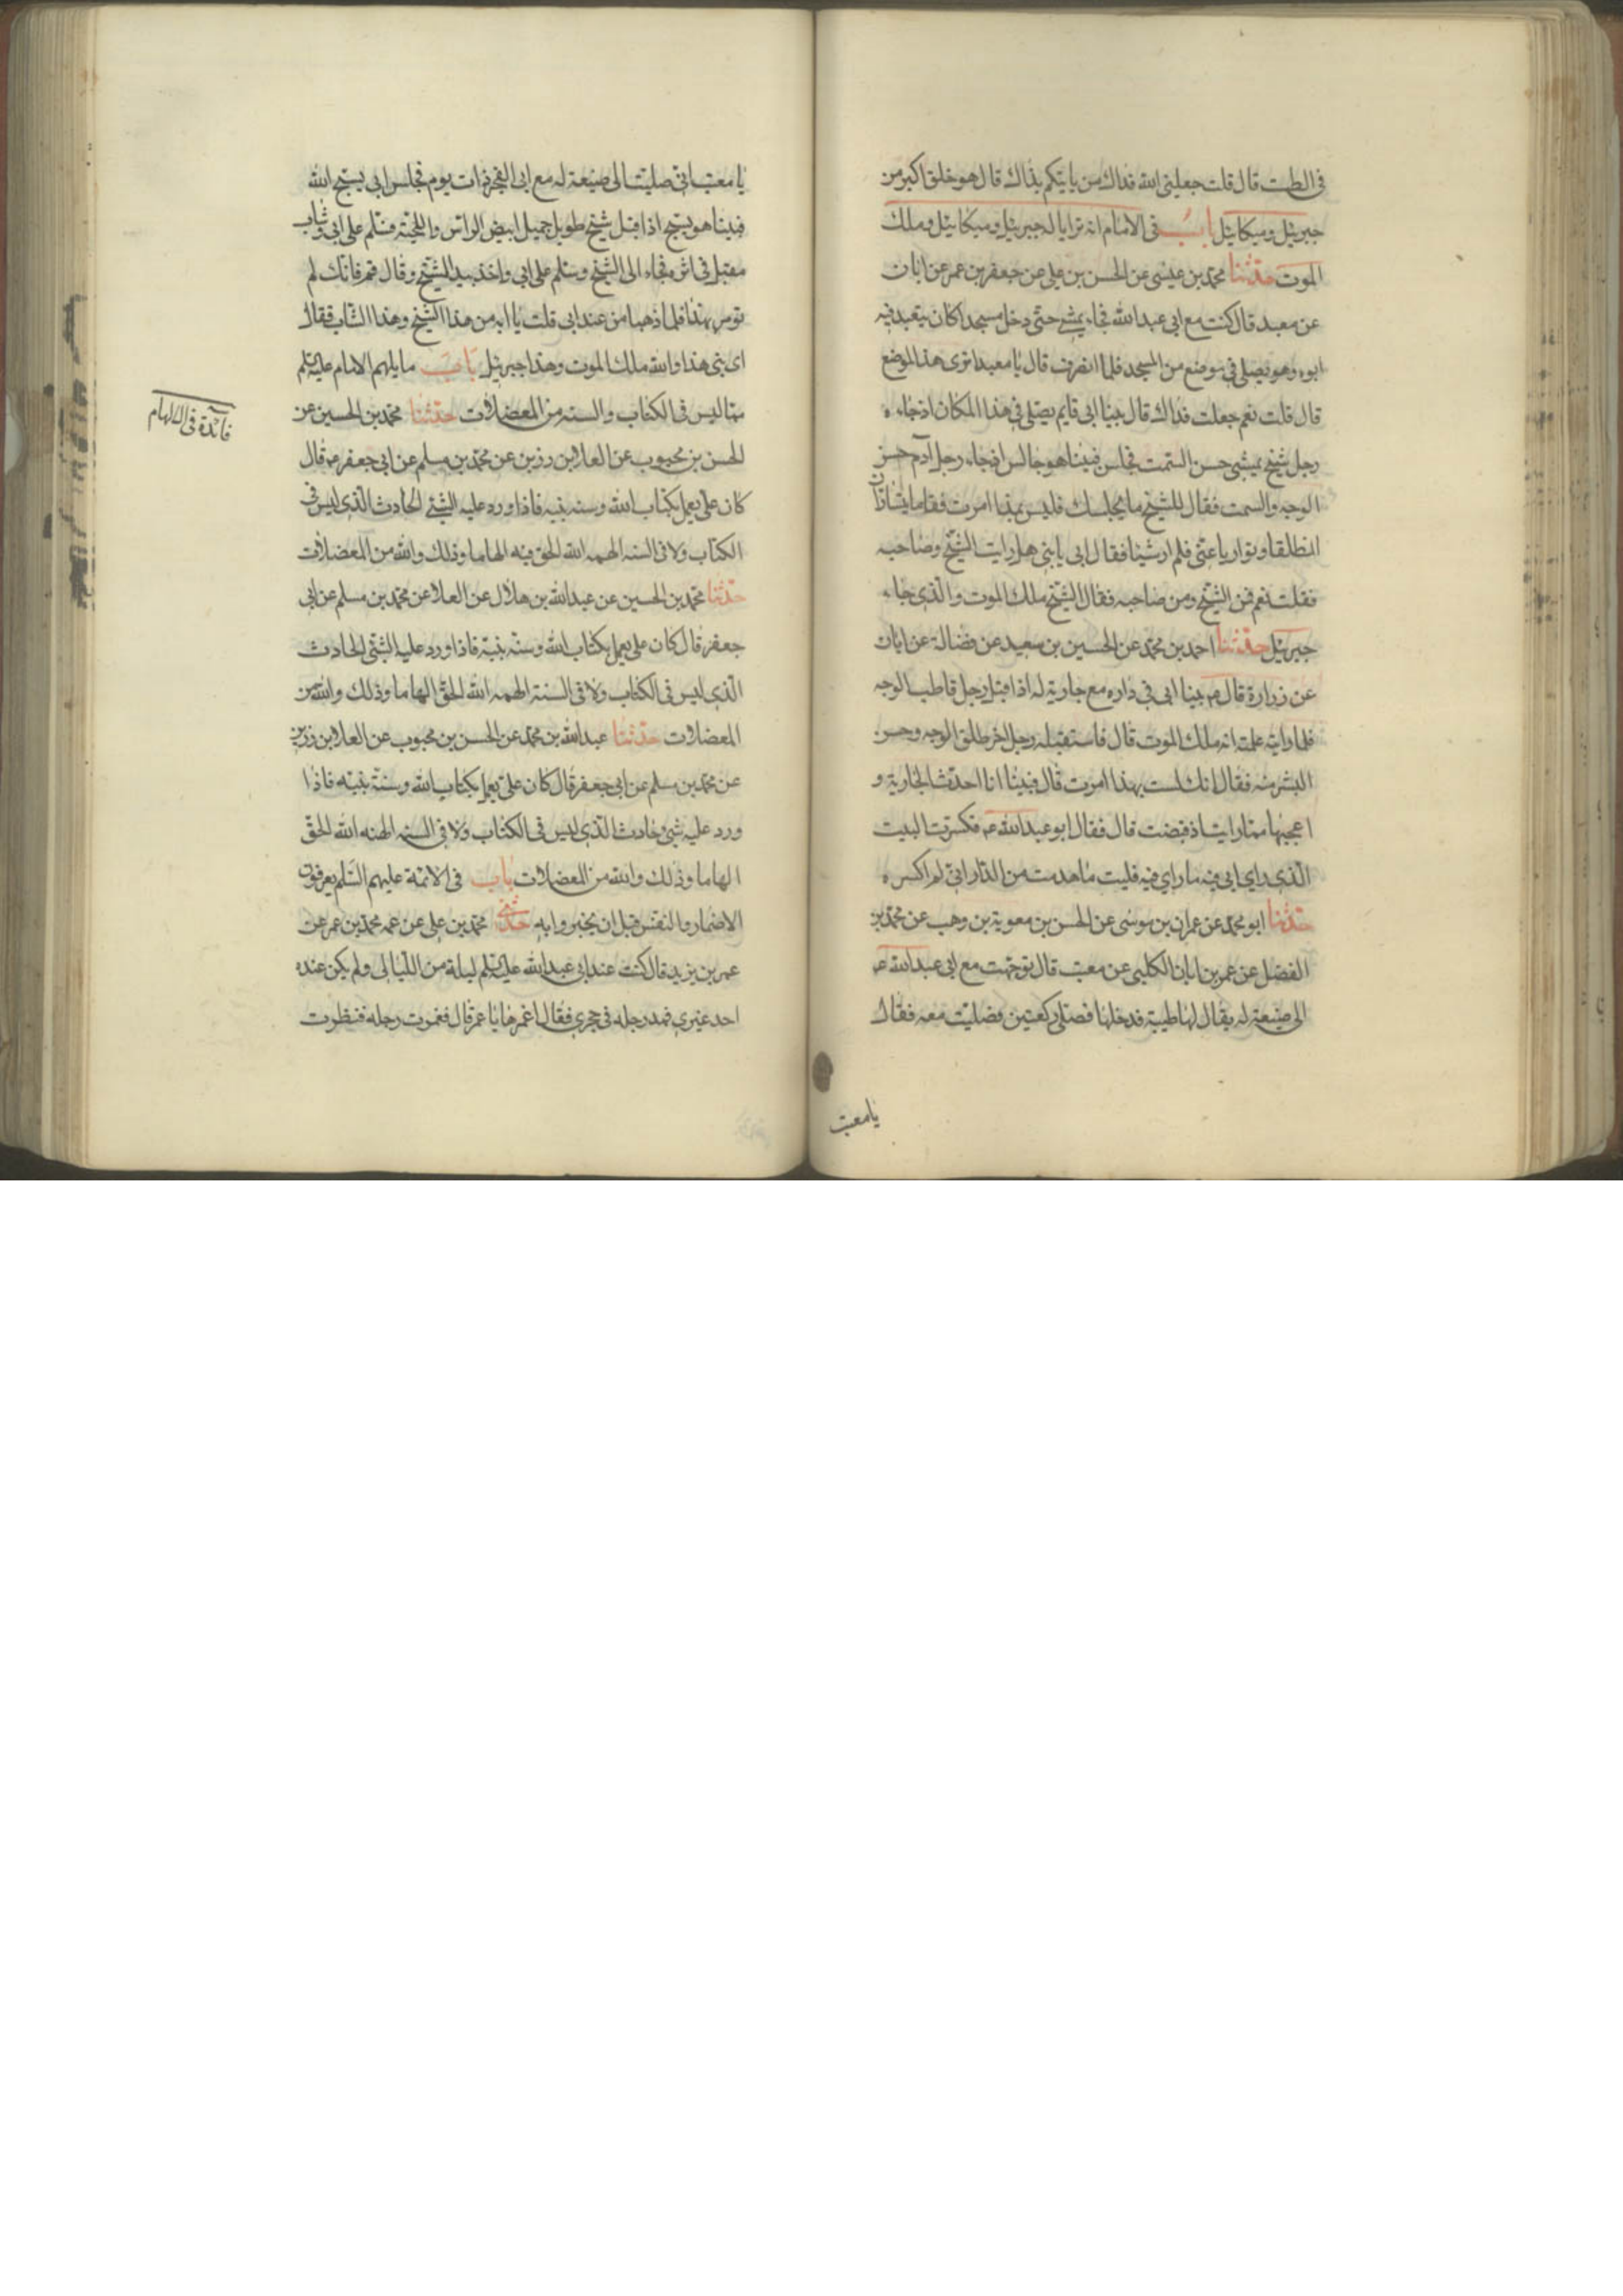 في الطست قال قلت جعلني الله فداك من ياتيكم بذاك قال هو خلق اكبر من
جبرئيل وميكائيل باب في الامام انه ترايا له جبرئيل وميكائيل وملك
الموت حدثنا محمد بن عيسى عن الحسن بن علي عن جعفر بن عمر عن ابان
عن معبد قال كنت مع ابي عبد الله فجاء يمشي حتى دخل مسجدا كان يتعبد فيه
ابوه وهو يصلي في موضع من المسجد فلما انصرف قال يا معبد اترى هذا الموضع
قال قلت نعم جعلت فداك قال بينا ابي قايم يصلي في هذا المكان اذ جاءه
رجل شيخ يمشي حسن السمت فجلس فبينا هو جالس اذ جاء رجل آدم حسن
الوجه والسمت فقال للشيخ ما يجلسك فليس بهذا امرت فقاما يتساران
انطلقا وتواريا عني فلم ار شيئا فقال ابي يا بني هل رايت الشيخ وصاحبه
فقلت نعم فمن الشيخ ومن صاحبه فقال الشيخ ملك الموت والذي جاء
جبرئيل حدثنا احمد بن محمد عن الحسين بن سعيد عن فضالة عن ابان
عن زرارة قال بينا ابي في داره مع جارية له اذ اقبل رجل قاطب الوجه
فلما رايته علمت انه ملك الموت قال فاستقبله رجل اخر طلق الوجه وحسن
البشر منه فقال انك لست بهذا امرت قال فبينا انا احدث الجارية و
اعجبها مما رايت اذ قبضت قال فقال ابو عبد الله ع فكسرت البيت
الذي راي ابي فيه ما راي فيه فليت ما هدمت من الدار اني لم اكسره
حدثنا ابو محمد عن عمران بن موسى عن الحسن بن معوية بن وهب عن محمد بن
الفضل عن عمر بن ابان الكلبي عن معتب قال توجهت مع ابي عبد الله ع
الى ضيعة له يقال لها طيبة فدخلها فصلى ركعتين فصليت معه فقال
يا معتب
يا معتب اني صليت الى ضيعة له مع ابي الفجر ذات يوم فجلس ابي يسبح الله
فبينا هو يسبح اذ اقبل شيخ طويل جميل ابيض الراس واللحية فسلم على ابي وشاب
مقبل في اثره فجاء الى الشيخ وسلم على ابي واخذ بيد الشيخ وقال قم فانك لم
تومر بهذا فلما ذهبا من عند ابي قلت يا ابه من هذا الشيخ وهذا الشاب فقال
اي بني هذا والله ملك الموت وهذا جبرئيل باب ما يلهم الامام عليه السلم
مما ليس في الكتاب والسنه من المعضلات حدثنا محمد بن الحسين عن
الحسن بن محبوب عن العلا بن رزين عن محمد بن مسلم عن ابي جعفر ع قال
كان علي يعمل بكتاب الله وسنه نبيه فاذا ورد عليه الشيئ الحادث الذي ليس في
الكتاب ولا في السنه الهمه الله الحق فيه الهاما وذلك والله من المعضلات
حدثنا محمد بن الحسين عن عبد الله بن هلال عن العلا عن محمد بن مسلم عن ابي
جعفر قال كان علي يعمل بكتاب الله وسنة نبيه فاذا ورد عليه الشئ الحادث
الذي ليس في الكتاب ولا في السنة الهمه الله الحق الهاما وذلك والله من
المعضلات حدثنا عبد الله بن محمد عن الحسن بن محبوب عن العلا بن رزين
عن محمد بن مسلم عن ابي جعفر قال كان علي يعمل بكتاب الله وسنة نبيه فاذا
ورد عليه شئ حادث الذي ليس في الكتاب ولا في السنه الهمه الله الحق
الهاما وذلك والله من المعضلات باب في الائمة عليهم السلم يعرفون
الاضمار والنفس قبل ان يخبروا به حدثني محمد بن علي عن عمه محمد بن عمر عن
عمر بن يزيد قال كنت عند ابي عبد الله عليه السلم ليلة من الليالي ولم يكن عنده
احد غيري فمد رجله في حجري فقال اغمزها يا عمر قال فغمزت رجله فنظرت
فائدة في الالهام